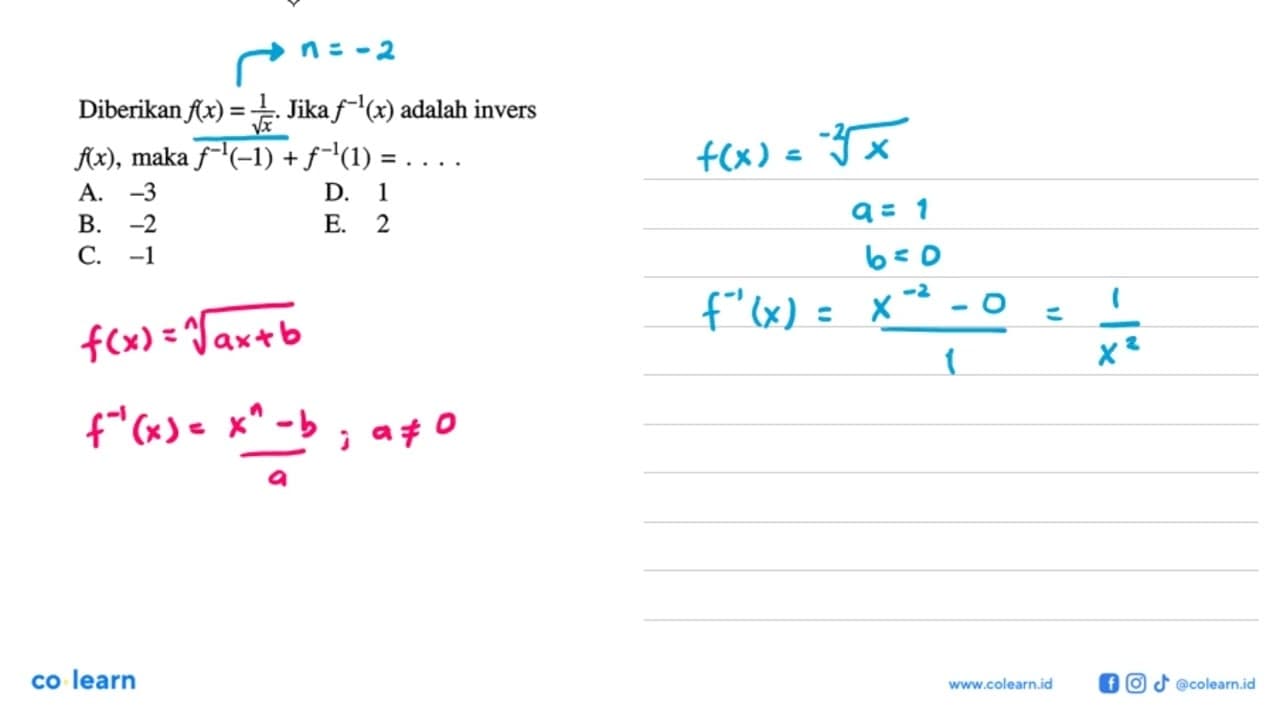 n = -2
Diberikan f(x) = 1/√x. Jika f⁻¹(x) adalah invers
f(x), maka f⁻¹(–1) + f⁻¹(1) = . . . .
A. –3 D. 1
B. –2 E. 2
C. –1
f(x) = ⁿ√(ax+b)
f⁻¹(x) = (xⁿ - b)/a ; a ≠ 0
f(x) = ⁻²√x
a = 1
b = 0
f⁻¹(x) = (x⁻² - 0)/1 = 1/x²
co learn
www.colearn.id
@colearn.id